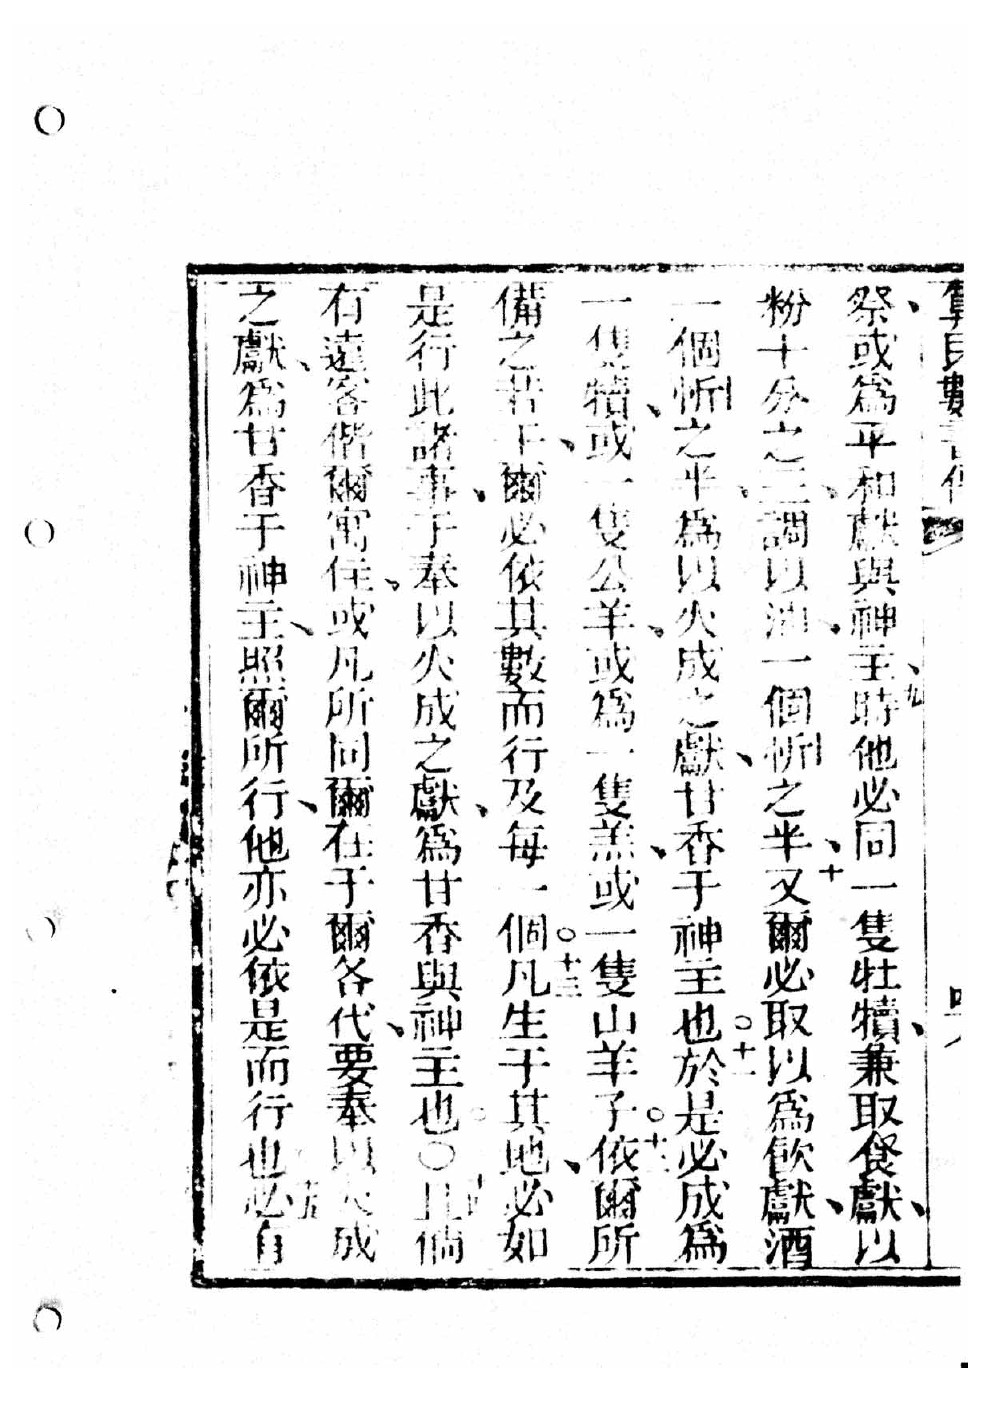 算民數書傳
祭或爲平和獻與神主時九他必同一隻牡犢、兼取餐獻、以
粉十分之三、調以油、一個忻之半、十又爾必取以爲飲獻、酒
一個忻之半、爲以火成之獻、甘香于神主也。十一於是必成爲
一隻犢、或一隻公羊、或爲一隻羔、或一隻山羊子。十二依爾所
備之若干、爾必依其數而行及每一個。十三凡生于其地、必如
是行此諸事、于奉以火成之獻、爲甘香與神主也。○十四且倘
有遠客偕爾寓住、或凡所同爾在于爾各代、要奉以火成
之獻、爲甘香于神主、照爾所行、他亦必依是而行也十五必有